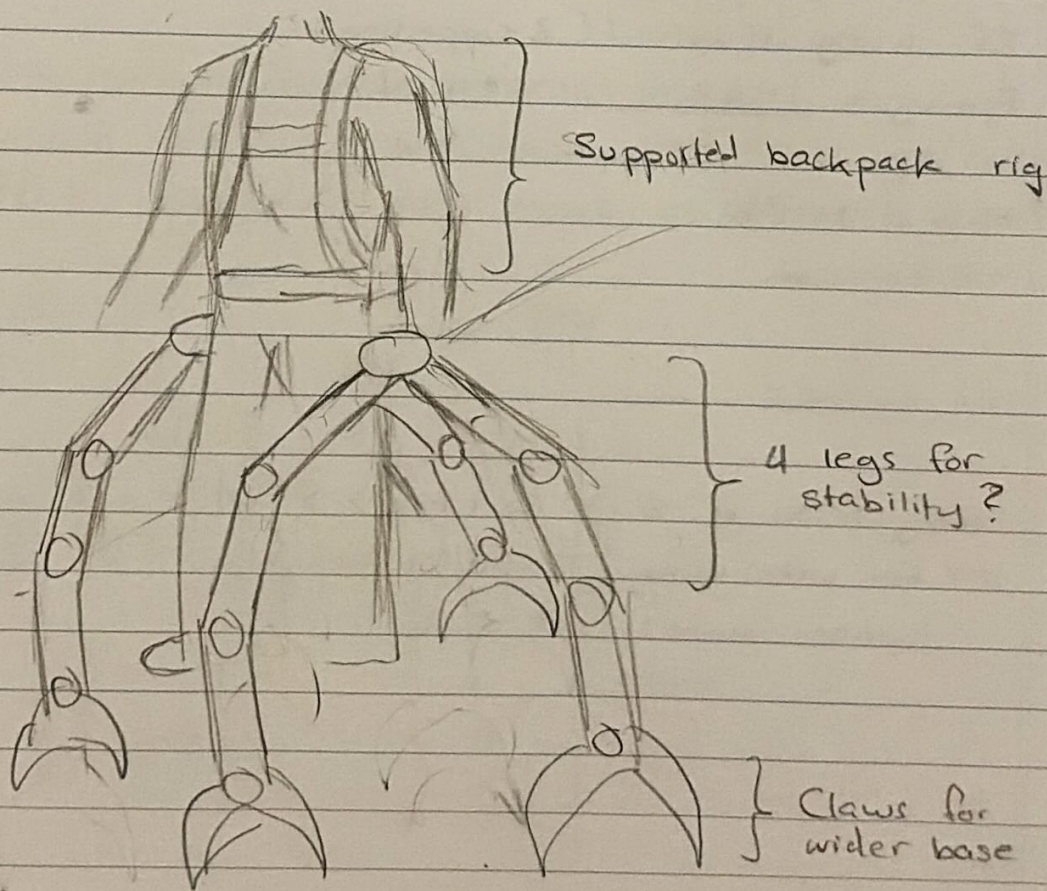 Supported backpack rig
4 legs for
stability?
Claws for
wider base